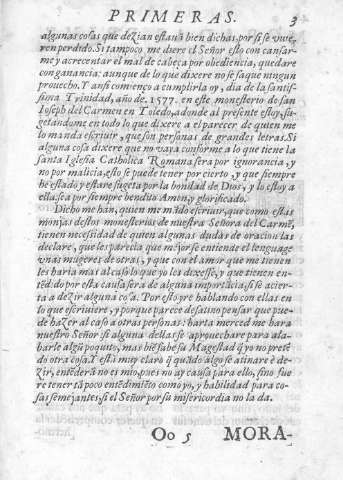 PRIMERAS. 3
algunas cosas que dezian estauã bien dichas, por si se vuie,
ren perdido. Si tampoco me diere el Señor esto con cansar-
me y acrecentar el mal de cabeça por obediencia, quedare
con ganancia: aunque de lo que dixere no se saque ningun
prouecho. Y ansi començo a cumplirla oy, dia de la santis-
sima Trinidad, año de. 1577. en este monesterio de san
Ioseph del Carmen en Toledo, adonde al presente estoy, su-
getandome en todo lo que dixere a el parecer de quien me
lo manda escriuir, que son personas de grandes letras. Si
alguna cosa dixere que no vaya conforme a lo que tiene la
santa Iglesia Catholica Romana sera por ignorancia, y
no por malicia, esto se puede tener por cierto, y que siempre
he estado y estare sugeta por la bondad de Dios, y lo estoy a
ella, sea por siempre bendito Amen, y glorificado.
Dicho me han, quien me mãdo escriuir, que como estas
monjas destos monesterios de nuestra Señora del Carmē,
tienen necessidad de quien algunas dudas de oracion las
declare, que les parecia que mejor se entiende el lenguage
vnas mugeres de otras, y que con el amor que me tienen
les haria mas al caso lo que yo les dixesse, y que tienen en-
tēdido por esta causa sera de alguna importãcia, si se acier-
ta a dezir alguna cosa. Por esto yre hablando con ellas en
lo que escriuiere, y porque parece desatino pensar que pue-
de hazer al caso a otras personas: harta merced me hara
nuestro Señor si alguna dellas se aprouechare para ala-
barle algũ poquito, mas biē sabe su Magestad q̃ yo no pretē
do otra cosa. Y està muy claro q̃ quãdo algo se atinare ē de-
zir, entēderã no es mio, pues no ay causa para ello, sino fue
re tener tãpoco entēdimiēto como yo, y habilidad para co-
sas semejantes, si el Señor por su misericordia no la da.
Oo 5 MORA-